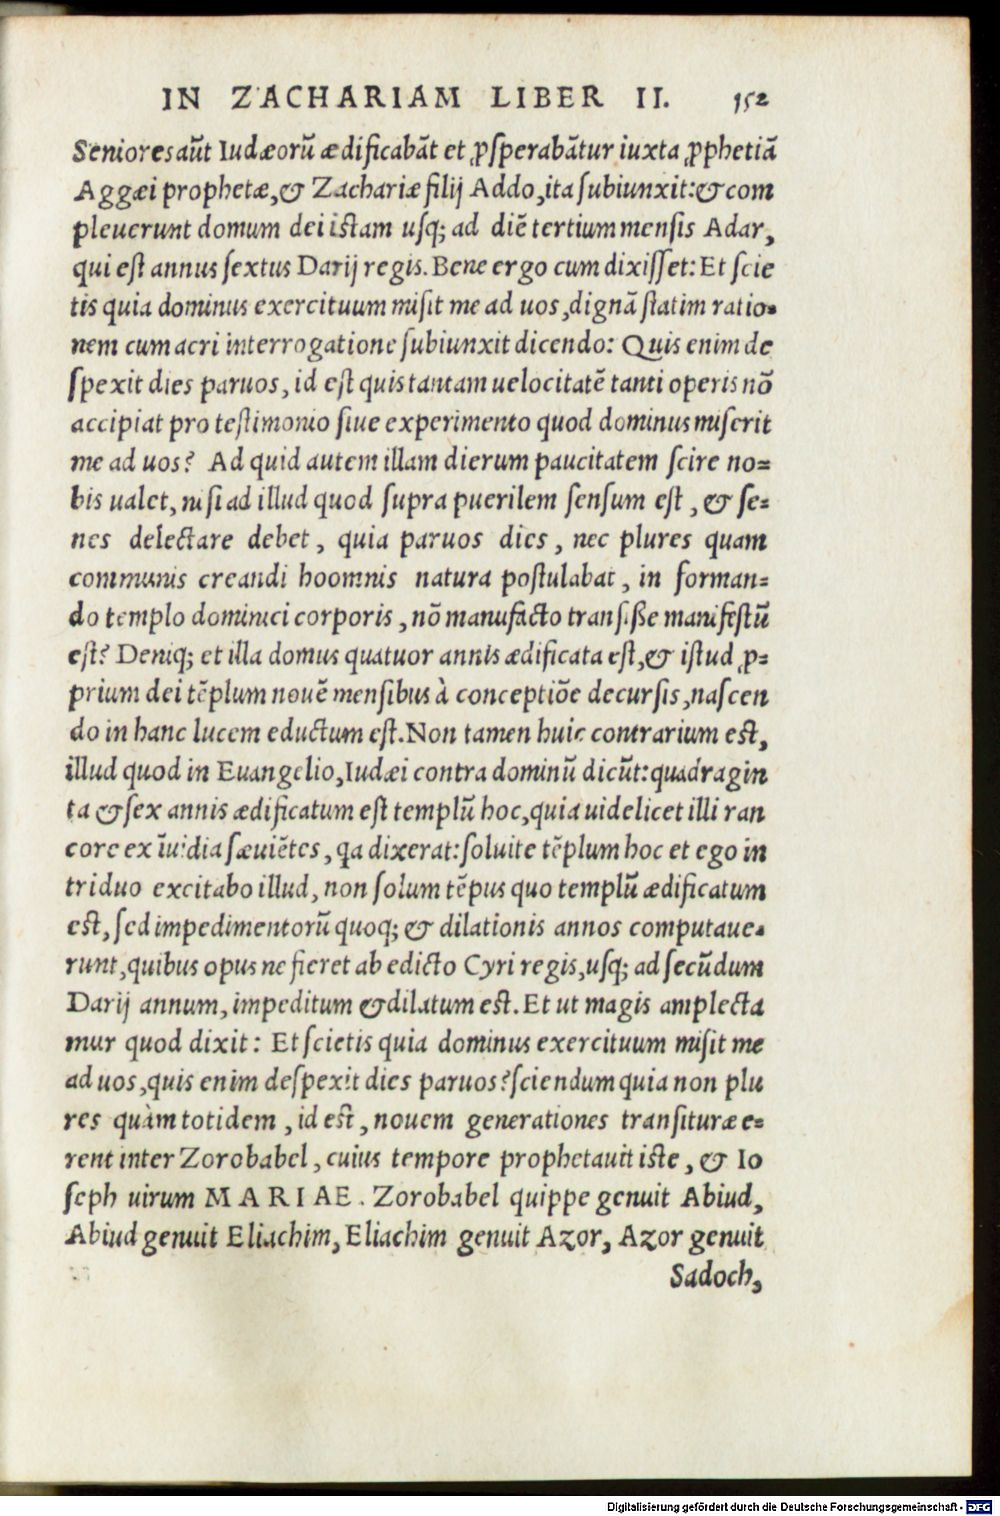 IN ZACHARIAM LIBER II. 152
Seniores aũt Iudæorũ ædificabãt et ꝓsperabãtur iuxta ꝓphetiã
Aggæi prophetæ, & Zachariæ filij Addo, ita subiunxit: & com
pleuerunt domum dei istam usq; ad diẽ tertium mensis Adar,
qui est annus sextus Darij regis. Bene ergo cum dixisset: Et scie
tis quia dominus exercituum misit me ad uos, dignã statim ratio-
nem cum acri interrogatione subiunxit dicendo: Quis enim de
spexit dies paruos, id est quis tantam uelocitatẽ tanti operis nõ
accipiat pro testimonio siue experimento quod dominus miserit
me ad uos? Ad quid autem illam dierum paucitatem scire no=
bis ualet, nisi ad illud quod supra puerilem sensum est, & se=
nes delectare debet, quia paruos dies, nec plures quam
communis creandi hoomnis natura postulabat, in forman=
do templo dominici corporis, nõ manufacto transiße manifestũ
est? Deniq; et illa domus quatuor annis ædificata est, & istud ꝓ=
prium dei tẽplum nouẽ mensibus à conceptiõe decursis, nascen
do in hanc lucem eductum est. Non tamen huic contrarium est,
illud quod in Euangelio, Iudæi contra dominũ dicũt: quadragin
ta & sex annis ædificatum est templũ hoc, quia uidelicet illi ran
core ex ĩuidia sæuiẽtes, qa dixerat: soluite tẽplum hoc et ego in
triduo excitabo illud, non solum tẽpus quo templũ ædificatum
est, sed impedimentorũ quoq; & dilationis annos computaue-
runt, quibus opus ne fieret ab edicto Cyri regis, usq; ad secũdum
Darij annum, impeditum & dilatum est. Et ut magis amplecta
mur quod dixit: Et scietis quia dominus exercituum misit me
ad uos, quis enim despexit dies paruos? sciendum quia non plu
res quàm totidem, id est, nouem generationes transituræ e=
rent inter Zorobabel, cuius tempore prophetauit iste, & Io
seph uirum MARIAE. Zorobabel quippe genuit Abiud,
Abiud genuit Eliachim, Eliachim genuit Azor, Azor genuit
Sadoch,
Digitalisierung gefördert durch die Deutsche Forschungsgemeinschaft - DFG